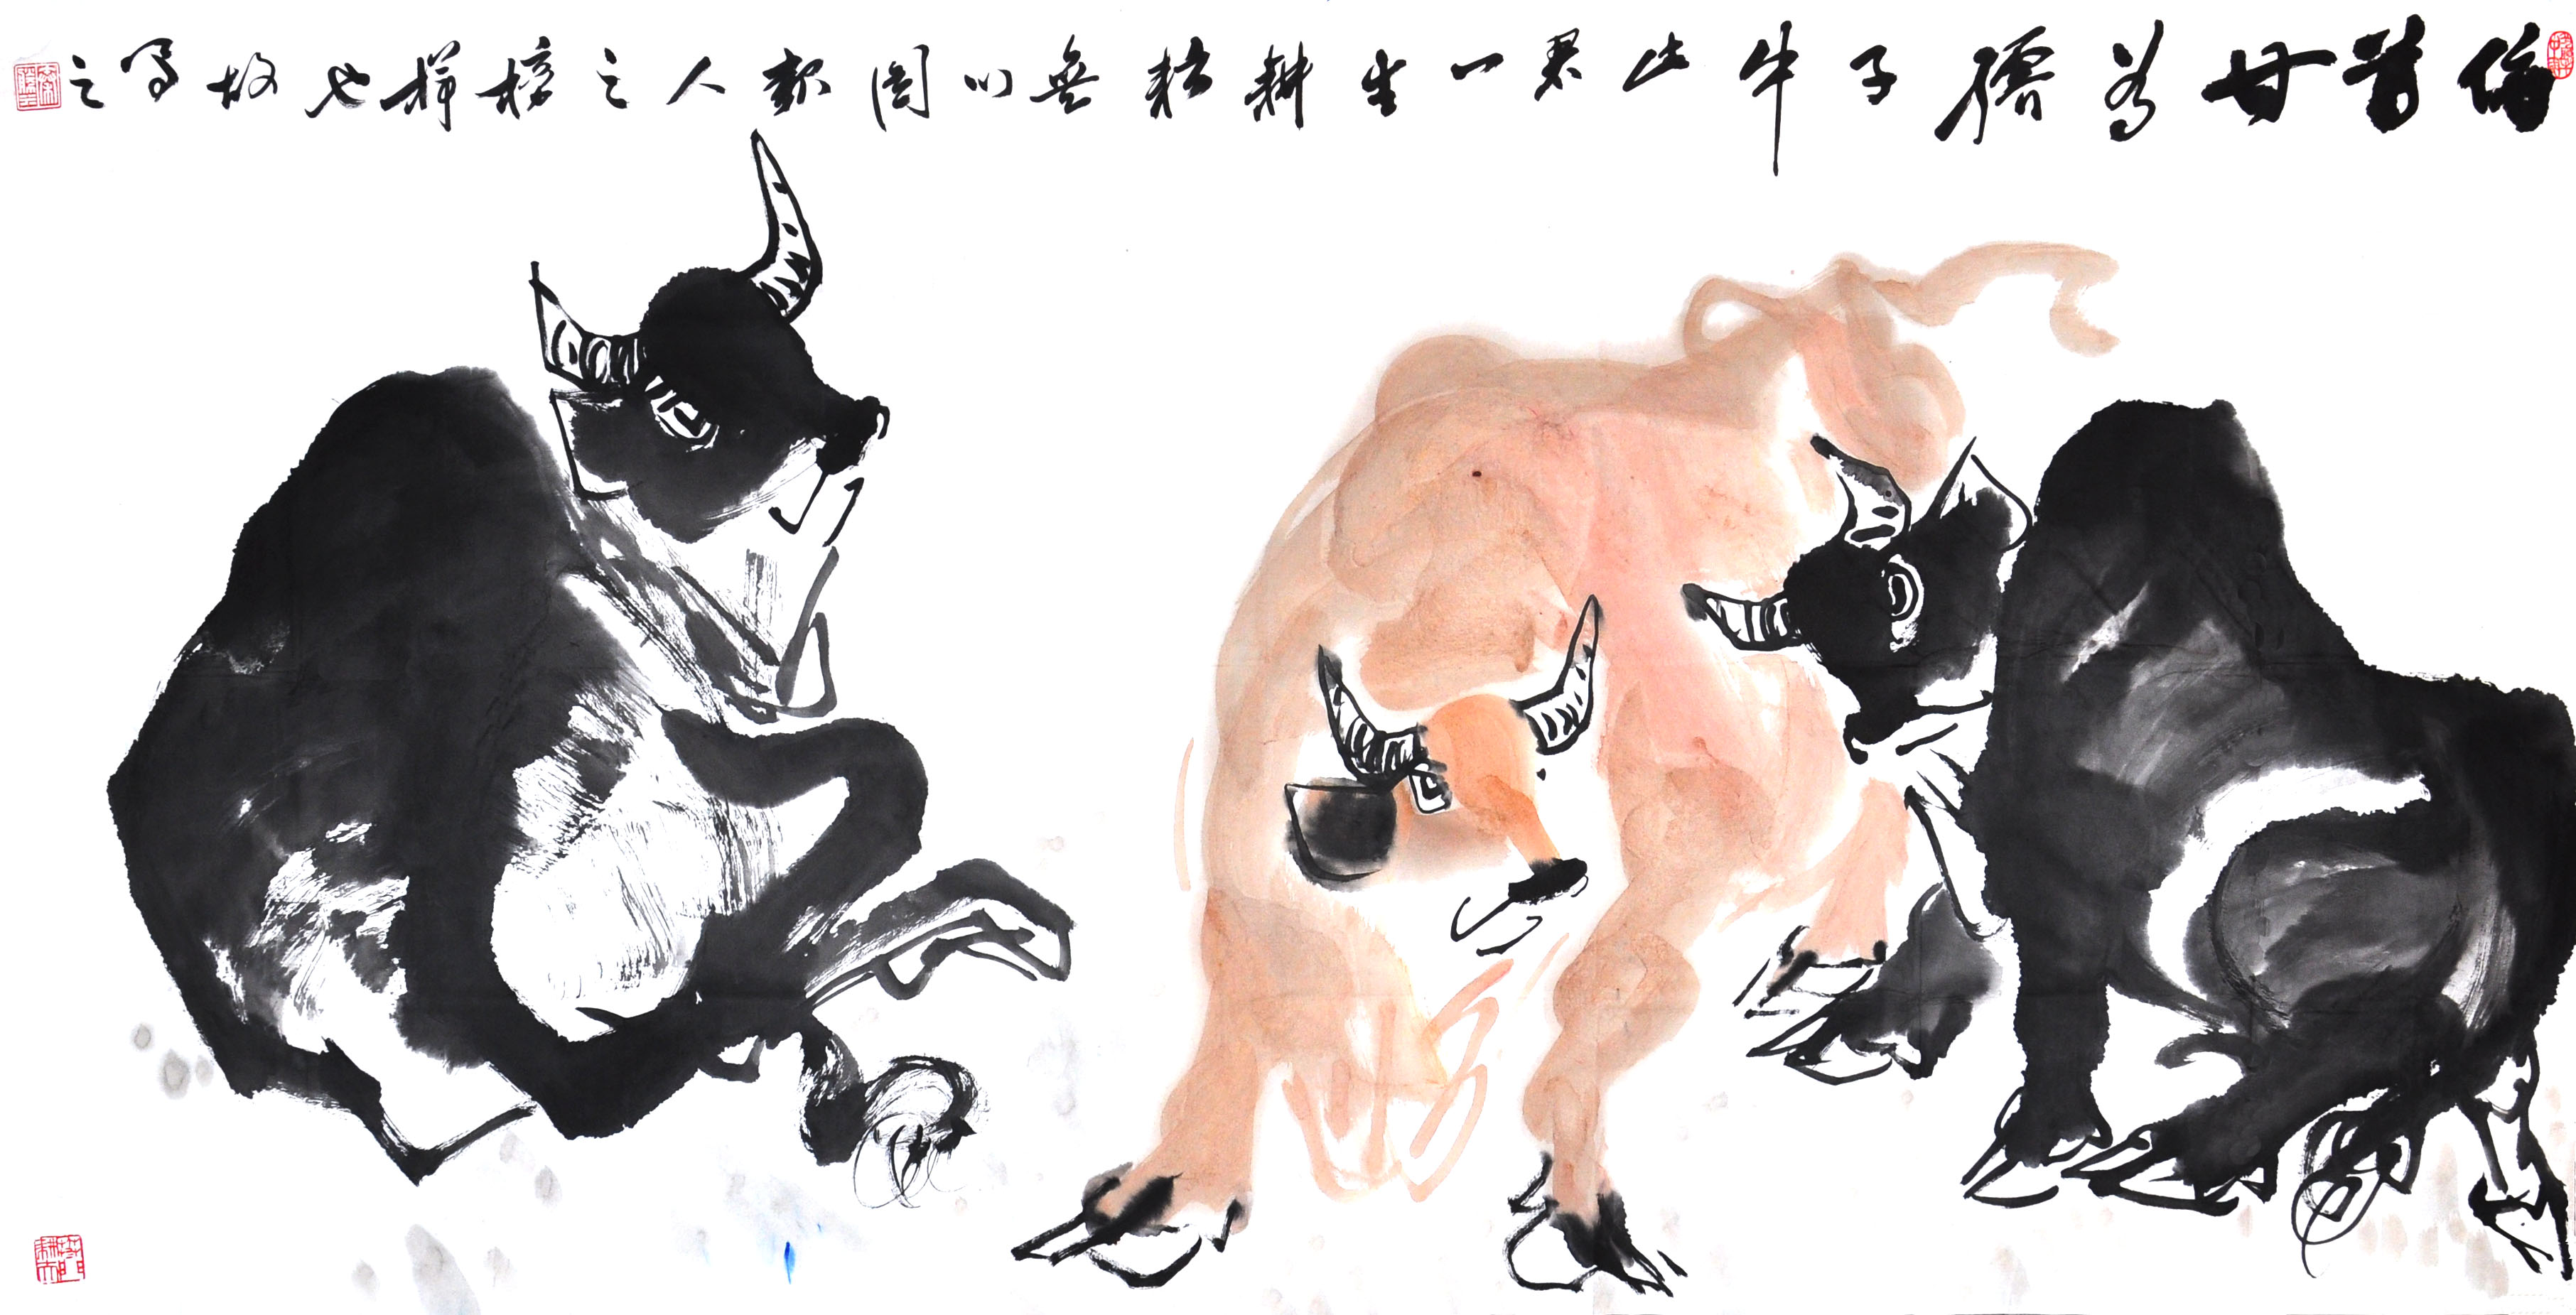 俯首甘为孺子牛此君一生耕耘无以图报人之榜样也故写之